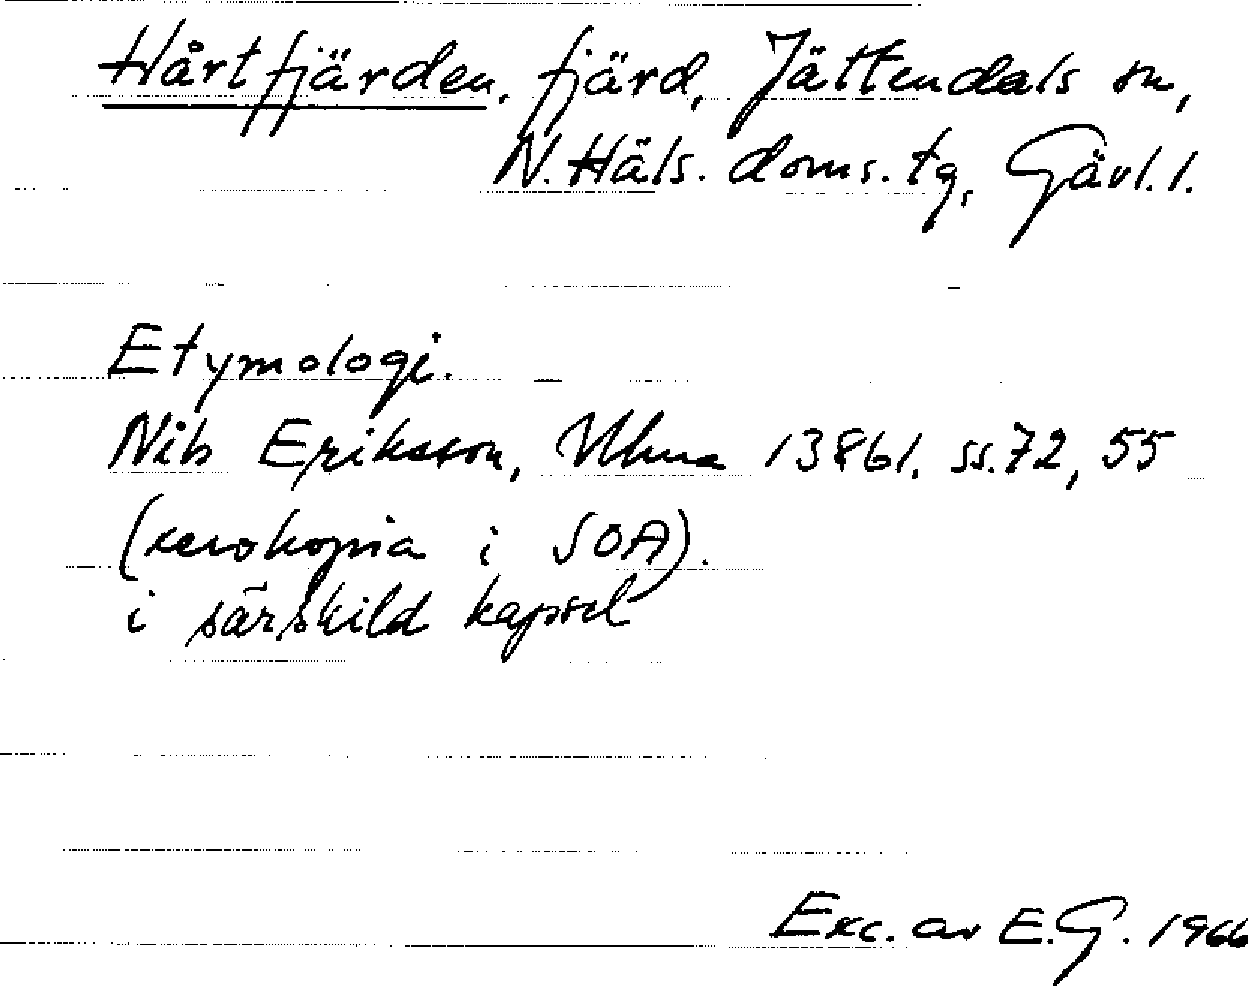 Hårtfjärden, fjärd, Jättendals sn,
N. Häls. doms. tg, Gävl. l.
Etymologi.
Nils Eriksson, Ulma 13861. ss. 72, 55
(xerokopia i SOA).
i särskild kapsel
Exc. av E.G. 1966